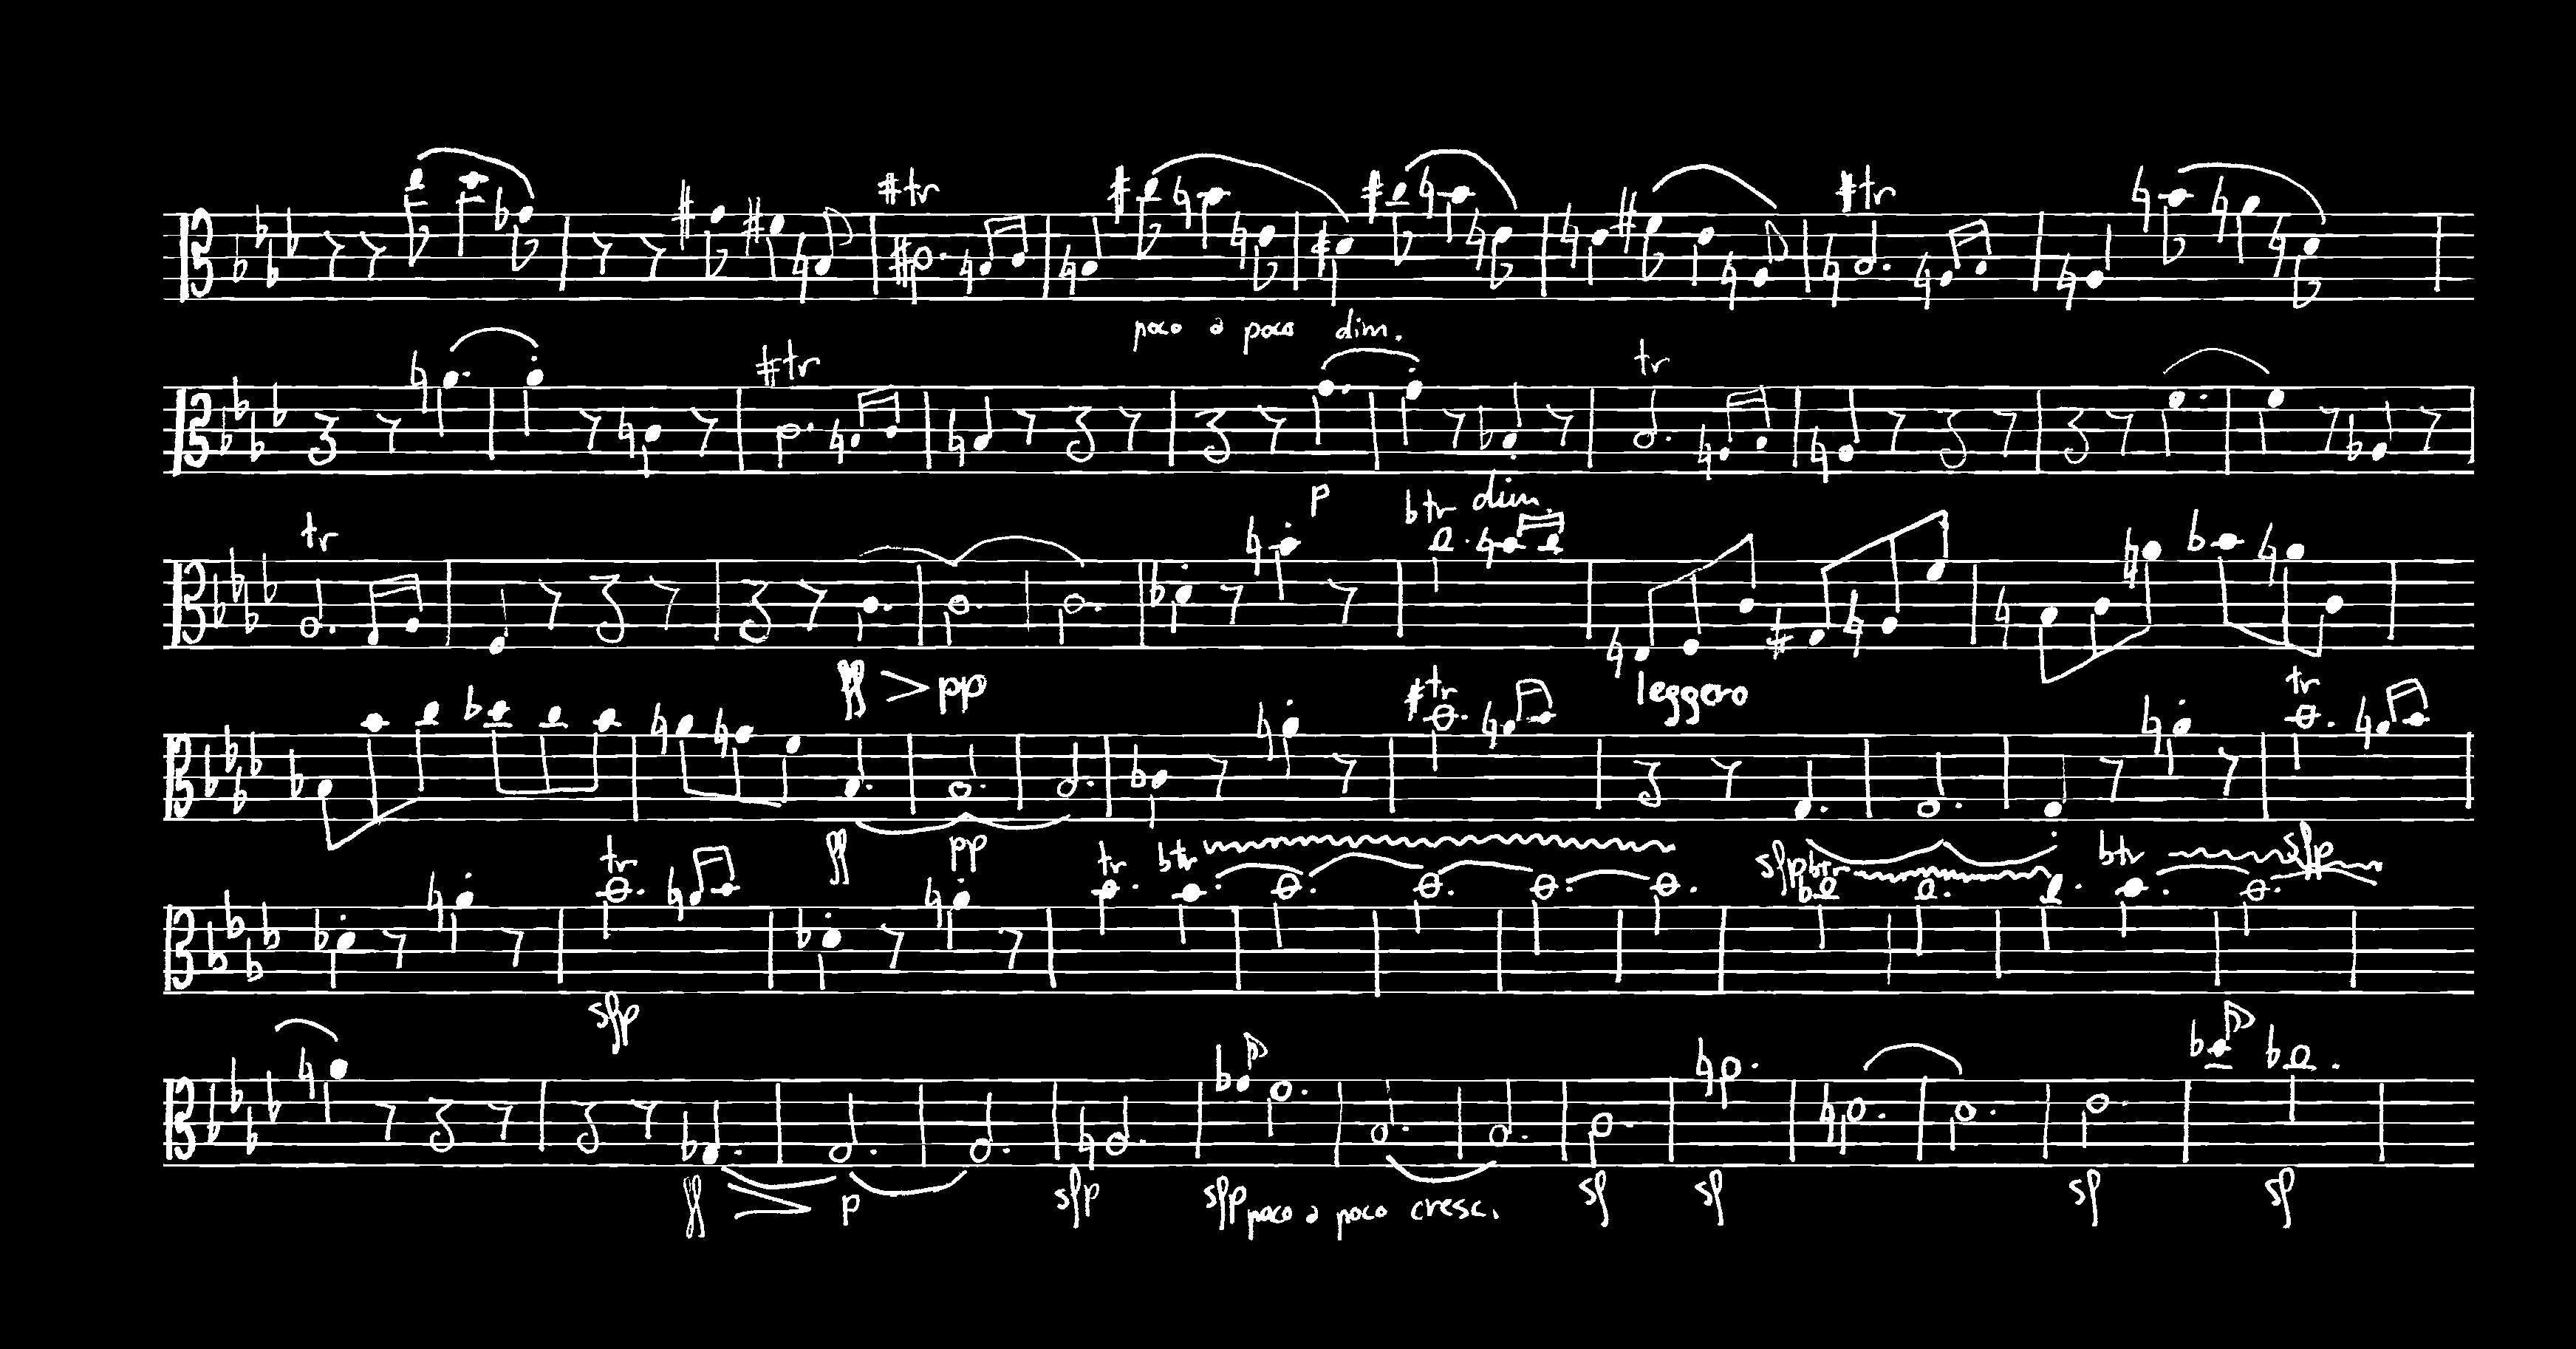 tr tr
poco a poco dim.
tr tr
p dim.
tr tr
ff pp leggero
tr tr
ff pp
tr tr btr sfpbtr btr sfp
sfp
ff p sfp sfp poco a poco cresc. sf sf sf sf